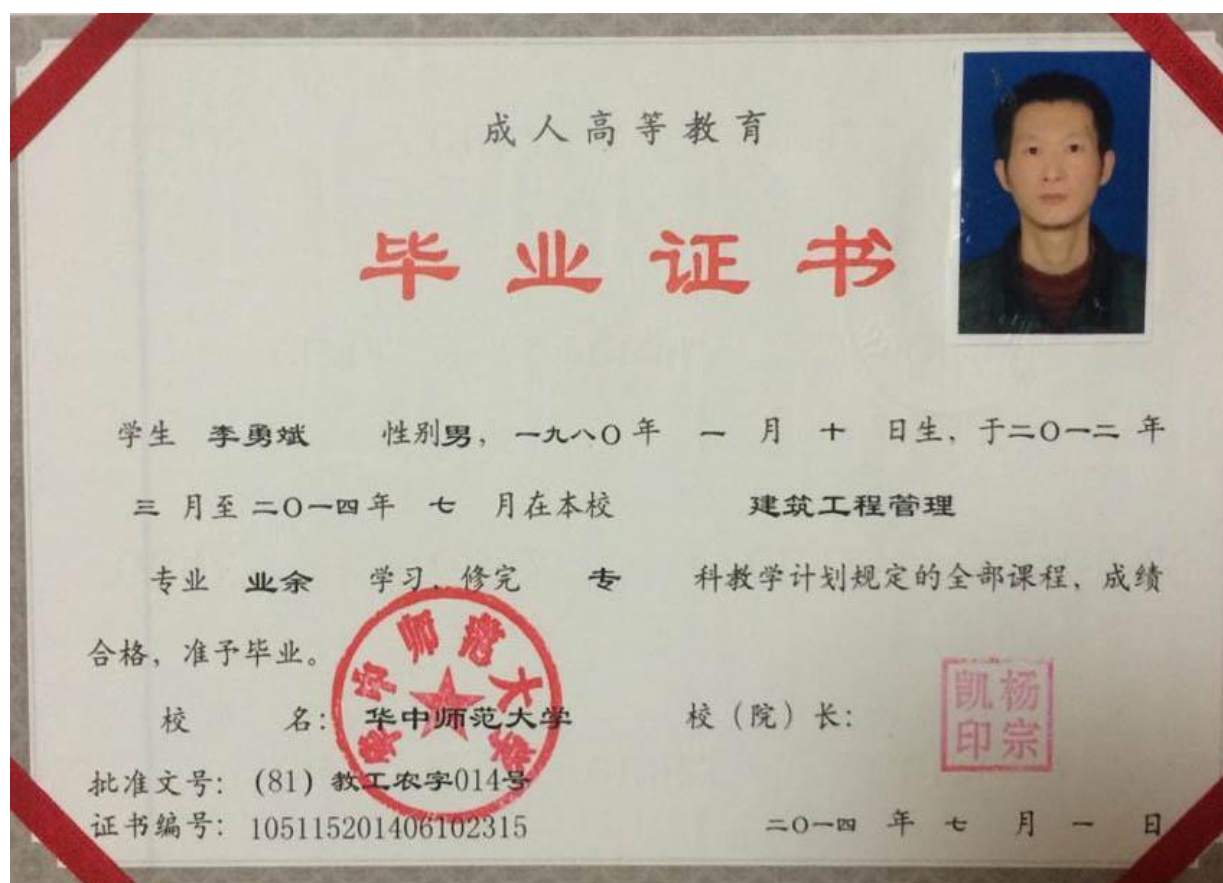 成人高等教育
毕业证书
学生 李勇斌 性别男，一九八〇年 一 月 十 日生，于二〇一二 年
三 月至 二〇一四年 七 月在本校 建筑工程管理
专业 业余 学习，修完 专 科教学计划规定的全部课程，成绩
合格，准予毕业。
校 名：华中师范大学 校（院）长：
杨宗凯印
华中师范大学
批准文号：(81) 教工农字014号
证书编号：105115201406102315 二〇一四 年 七 月 一 日